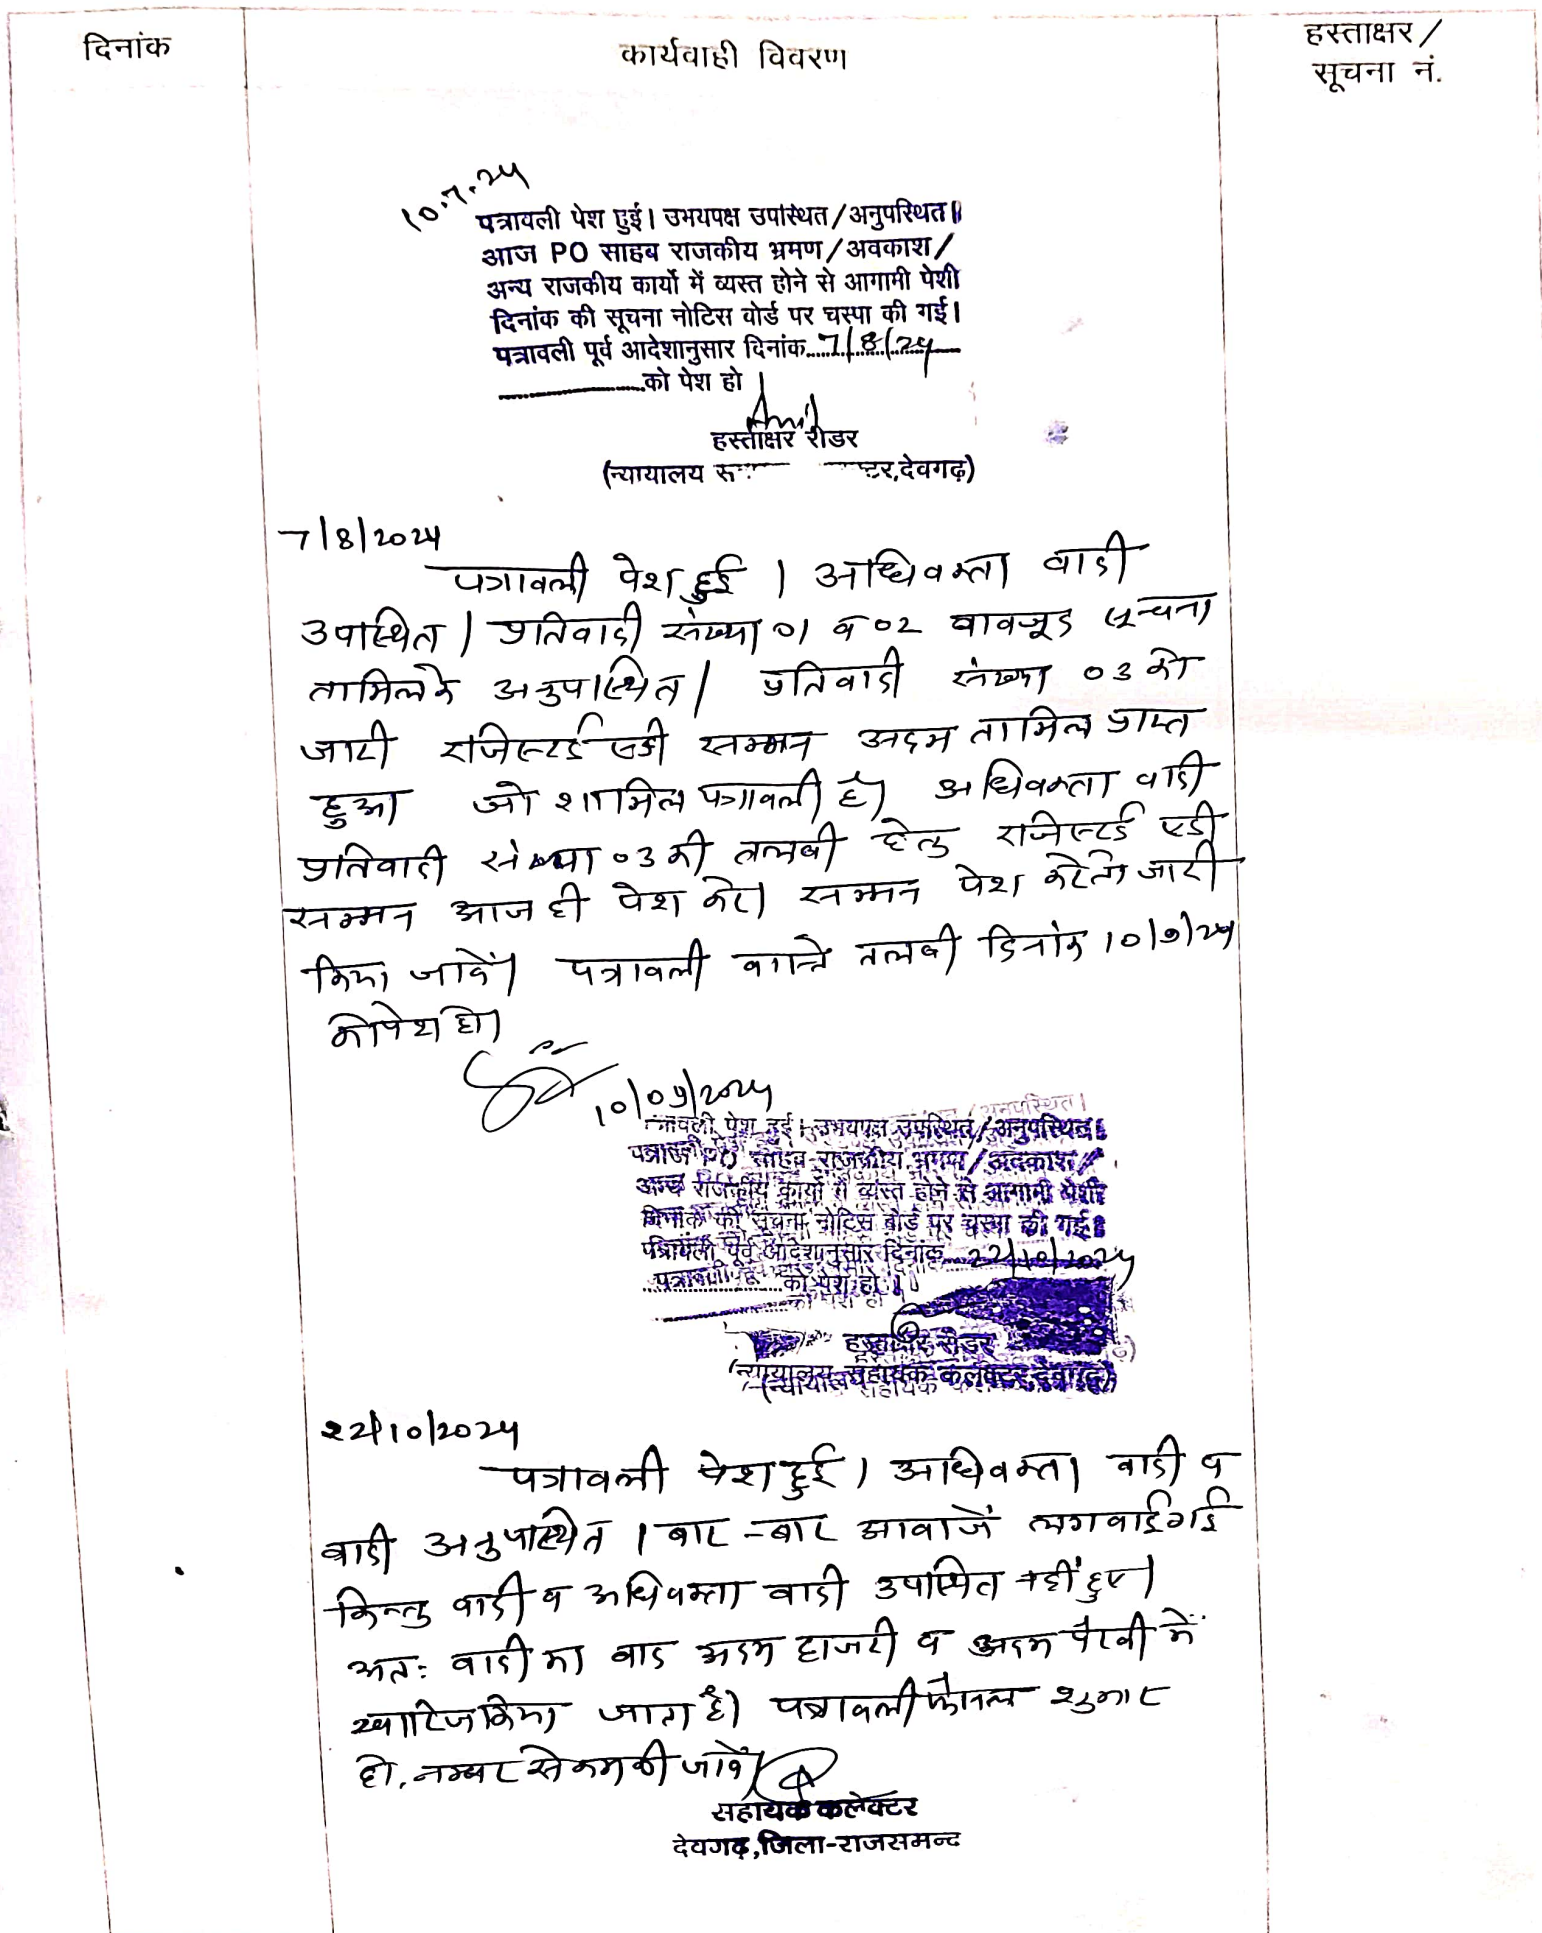 दिनांक
कार्यवाही विवरण
हस्ताक्षर/
सूचना नं.
10.7.24
पत्रावली पेश हुई। उभयपक्ष उपस्थित/अनुपस्थित।
आज PO साहब राजकीय भ्रमण/अवकाश/
अन्य राजकीय कार्यो में व्यस्त होने से आगामी पेशी
दिनांक की सूचना नोटिस बोर्ड पर चस्पा की गई।
पत्रावली पूर्व आदेशानुसार दिनांक 7/8/24
को पेश हो
हस्ताक्षर रीडर
(न्यायालय टर,देवगढ़)
7/8/2024
पत्रावली पेश हुई । अधिवक्ता वादी
उपस्थित। प्रतिवादी संख्या 01 व 02 बावजूद सूचना
तामिल के अनुपस्थित। प्रतिवादी संख्या 03 को
जारी रजिस्टर्ड एडी सम्मन अदम तामिल प्राप्त
हुआ जो शामिल पत्रावली है। अधिवक्ता वादी
प्रतिवादी संख्या 03 की तलबी हेतु रजिस्टर्ड एडी
सम्मन आज ही पेश करे। सम्मन पेश करे तो जारी
किया जावें। पत्रावली वास्ते तलबी दिनांक 10/9/24
को पेश हो।
10/09/2024
पत्रावली पेश हुई। उभयपक्ष उपस्थित/अनुपस्थित।
आज PO साहब राजकीय भ्रमण/अवकाश/
अन्य राजकीय कार्यो में व्यस्त होने से आगामी पेशी
दिनांक की सूचना नोटिस बोर्ड पर चस्पा की गई।
पत्रावली पूर्व आदेशानुसार दिनांक 22/10/2024
को पेश हो।
हस्ताक्षर रीडर
(न्यायालय सहायक कलेक्टर,देवगढ़)
22/10/2024
पत्रावली पेश हुई। अधिवक्ता वादी व
वादी अनुपस्थित । बार-बार आवाजें लगवाई गई
किन्तु वादी व अधिवक्ता वादी उपस्थित नहीं हुए।
अतः वादी का वाद अदम हाजरी व अदम पैरवी में
खारिज किया जाता है। पत्रावली फैसल शुमार
हो, नम्बर से कम की जावे।
सहायक कलेक्टर
देवगढ़,जिला-राजसमन्द